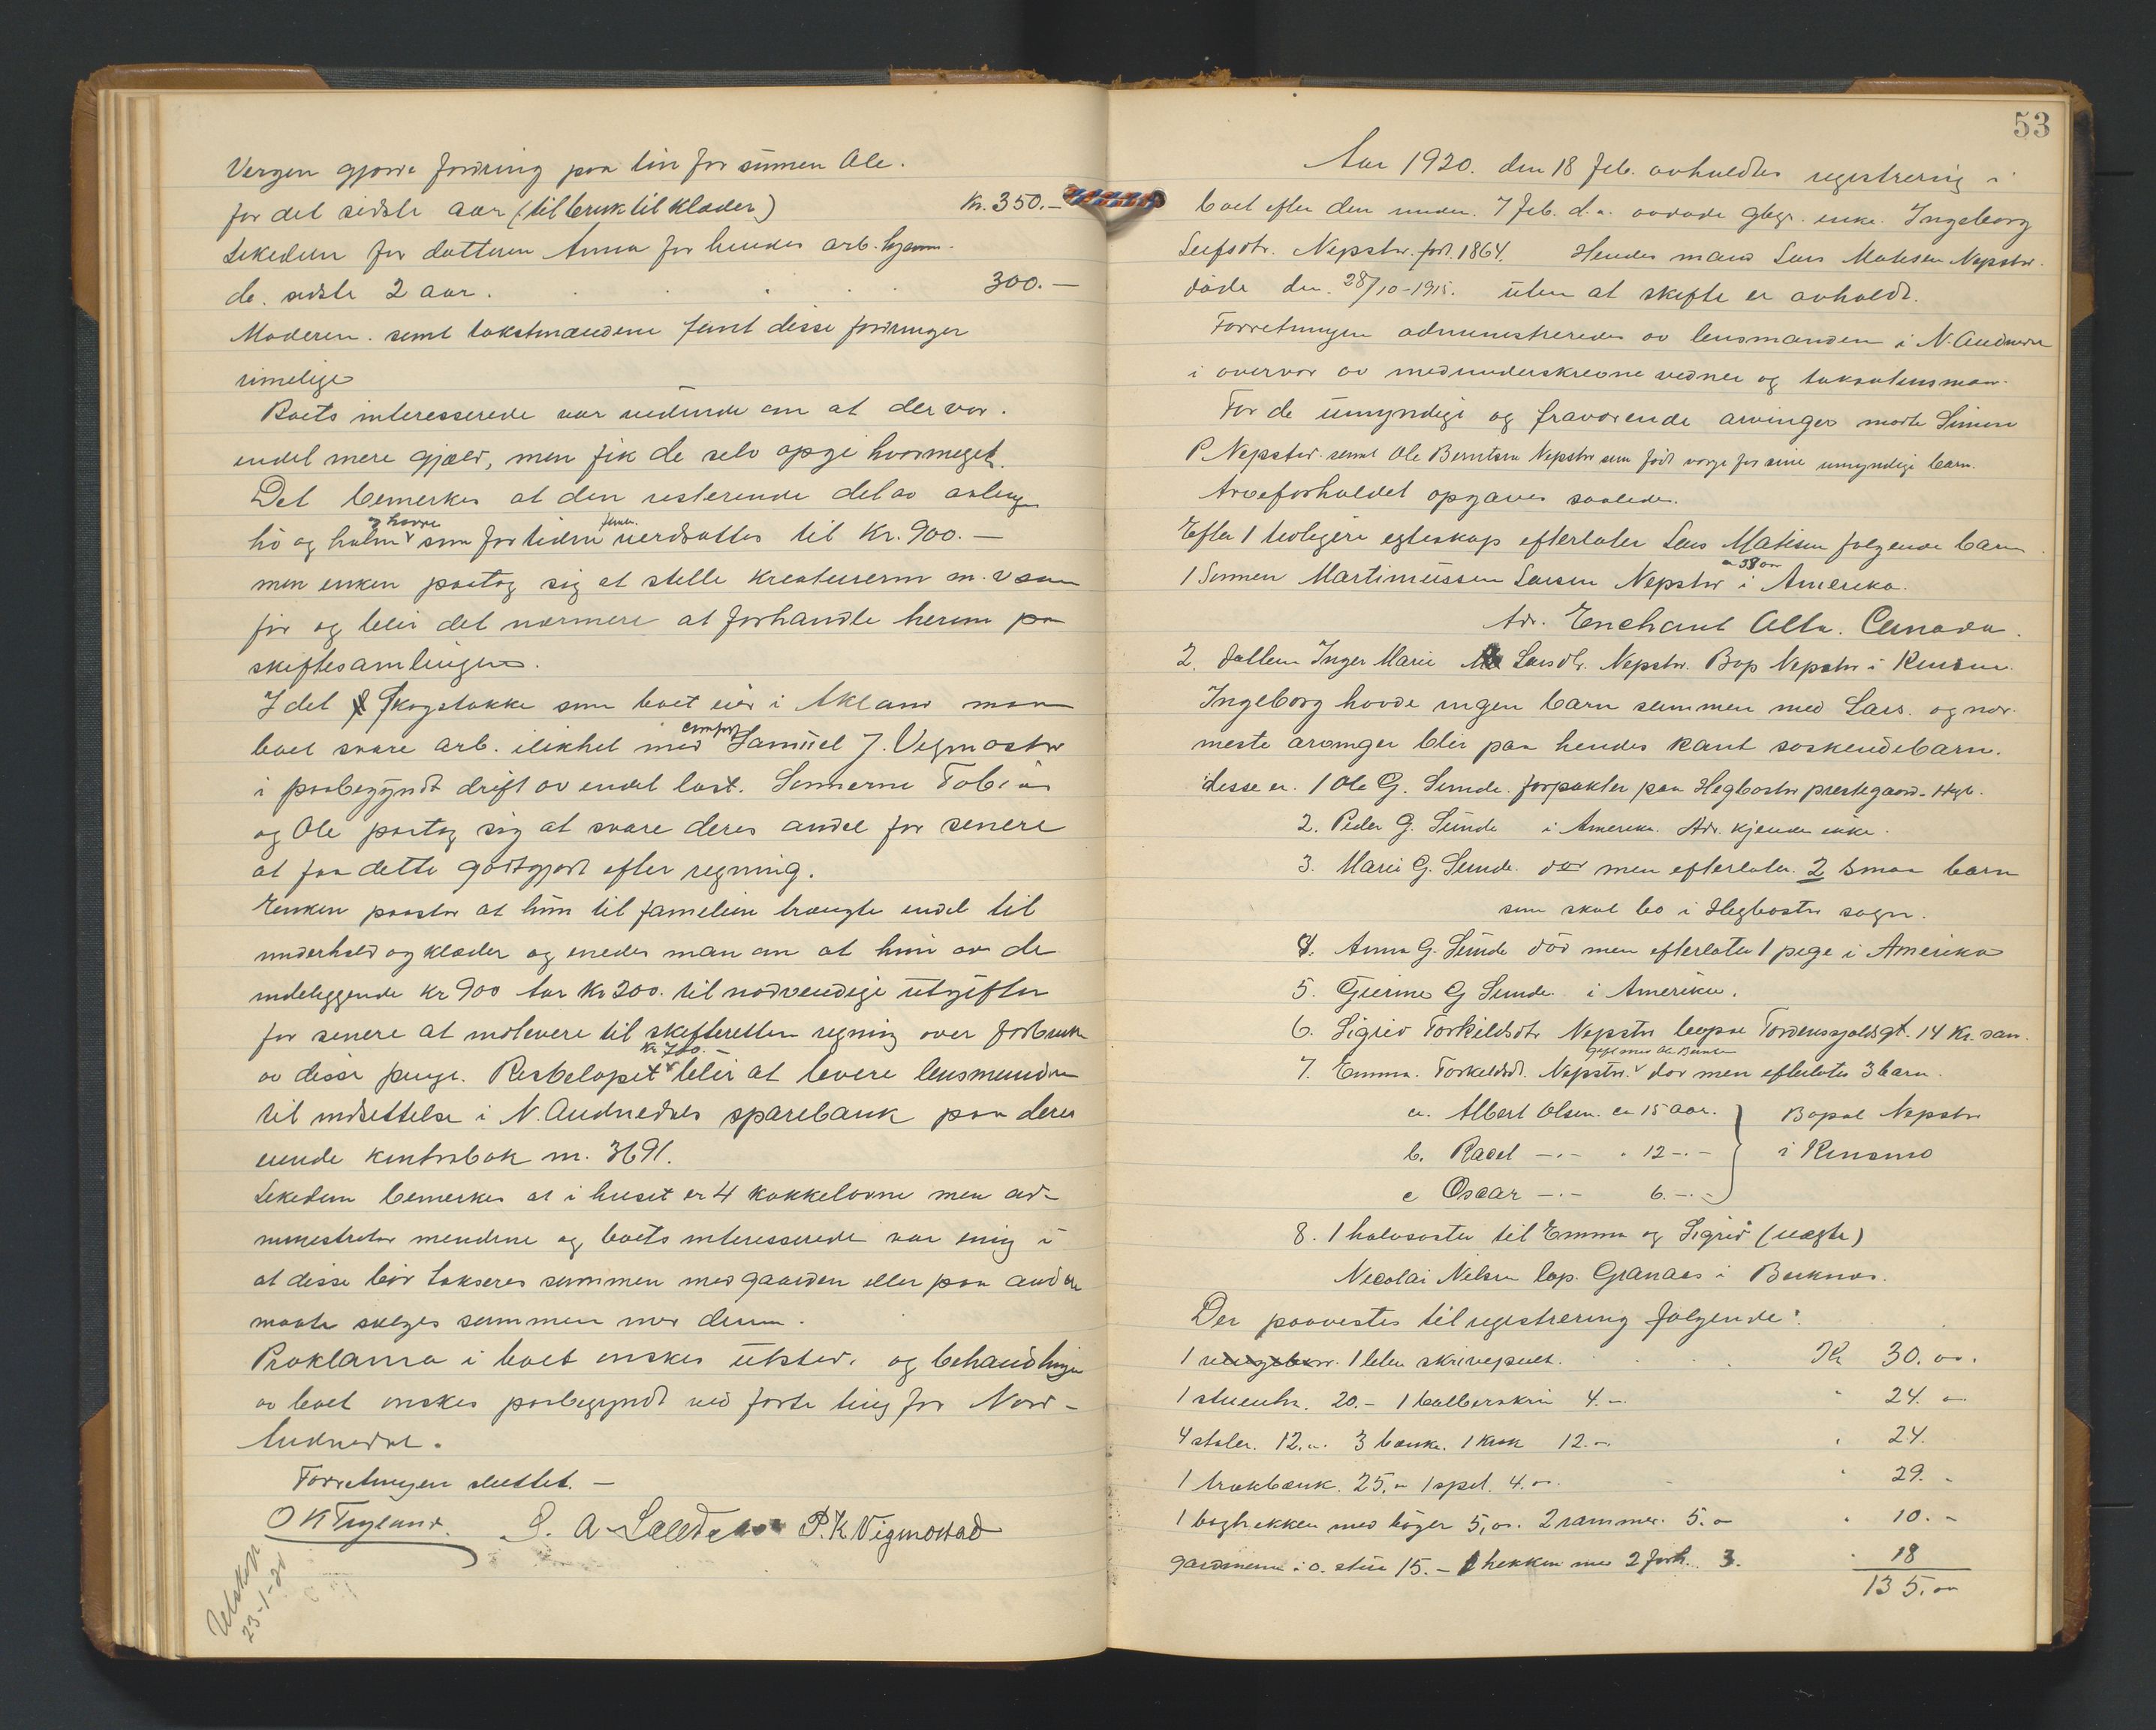 Vergen gjorde fordring paa lön for sönnen Ole.
for det sidste aar (til bruk til klæder) Kr. 350.-
Likedan for datteren Anna for hendes arb. hjemme
de sidste 2 aar. 300.-
Moderen samt takstmændene fant disse fordringer
rimelige
Boets interesserede var vidende om at der var
endel mere gjæld, men fik de selv opgi hvormeget.
Det bemerkes at den resterende del av avling
hö og halm og havre som for tiden verdsattes til Kr. 900.-
men enken paatog sig at stelle kreaturerne m. v som
för og blir det nærmere at forhandle herom paa
skiftesamlingen.
I det skogstykke som boet eier i Akland maa
boet svare arb. i likhet med Samuel J. Vigmostad
i paabegyndt drift av endel last. Sønnerne Tobias
og Ole paatog sig at svare deres andel for senere
at faa dette godtgjort efter regning.
Enken paastod at hun til familien trængte endel til
underhold og klæder og enedes man om at hun av de
indeliggende kr 900 tar Kr 200. til nødvendige utgifter
for senere at indlevere til skifteretten regning over forbruk
av disse penge. Restbelöpet Kr 700.- blir at levere lensmanden
til indsettelse i N. Audnedals sparebank paa deres
kontrabok nr. 3691.
Likedan bemerkes at i huset er 4 kakkelovne men ad-
ministrator mændene og boets interesserede var enig i
at disse bör takseres sammen med gaarden eller paa anden
maate selges sammen med denne.
Proklama i boet önskes utsted. og behandlingen
av boet önskes paabegyndt ved förste ting for Nord-
Audnedal.
Forretningen sluttet. -
O K Trygland. S. A. P. K Vigmostad
Utskrift
23-1-20
53
Aar 1920. den 18 feb. avholdtes registrering i
boet efter den 7 feb. d. a. avdöde gbgr. enke. Ingeborg
Leifsdtr. Nepstad. född. 1864. Hendes mand Lars Matisen Nepstad.
döde den. 28/10-1915. uten at skifte er avholdt.
Forretningen administreredes av lensmanden i N. Audnedal
i overvær av medunderskrevne vidner og taksationsmænd.
For de umyndige og fraværende arvinger mödte Simon
P. Nepstad samt Ole Berntsen Nepstad som född værge for sine umyndige barn.
Arveforholdet opgaves saaledes.
Efter 1 tidligere egteskap efterlater Lars Matisen følgende barn
1 Sønnen Martinussen Larsen Nepstad ca 38 aar i Amerika.
Adr. Enchant Alta. Canada.
2. datteren Inger Marie Larsdtr. Nepstad. Bop Nepstad i Kinsmo.
Ingeborg havde ingen barn sammen med Lars. og nær-
meste arvinger blir paa hendes kant søskendebarn.
disse er. 1 Ole G. Sunde. forpakter paa Hegbostad prestegaard - Hgb.
2. Peder G. Sunde i Amerika. Adr. kjendes ikke.
3. Marie G. Sunde. död men efterlater 2 smaa barn
som skal bo i Hegbostad sogn.
4. Anna G. Sunde död men efterlater 1 pige i Amerika
5. Gurine G Sunde. i Amerika.
6. Sigrid Torkildsdtr Nepstad bopæl Tordenskjoldsgt. 14 Kr. san.
7. Emma. Torkeldsdt. Nepstad. gift med Ole Berntsen död men efterlater 3 barn.
a. Albert Olsen. ca 15 aar. Bopæl Nepstad
b. Rasel -.- " 12 -.- i Kinsmo
c Oscar -.- 6. -.-
8. 1 halvsöster til Emma og Sigrid (uægte)
Nicolai Nilsen bop. Granaas i Bjeknæs.
Der paavistes til registrering følgende:
1 liten skrivepult. Kr 30.00.
1 stueuhr. 20.- 1 balberskrin 4.- " 24.-
4 stoler. 12.- 3 bænke. 1 krak 12.- " 24.
1 trækbænk. 25.- 1 speil. 4.00. " 29.-
1 boghekken med böger 5,00. 2 rammer. 5.- " 10.-
gardinene i ö. stue 15.- 1 hekken med 2 forh. 3. " 18
135.00